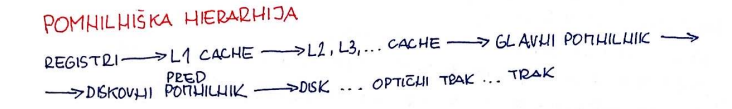 POMNILNIŠKA HIERARHIJA
REGISTRI → L1 CACHE → L2, L3, ... CACHE → GLAVNI POMNILNIK →
→ DISKOVNI PREDPOMNILNIK → DISK ... OPTIČNI TRAK ... TRAK